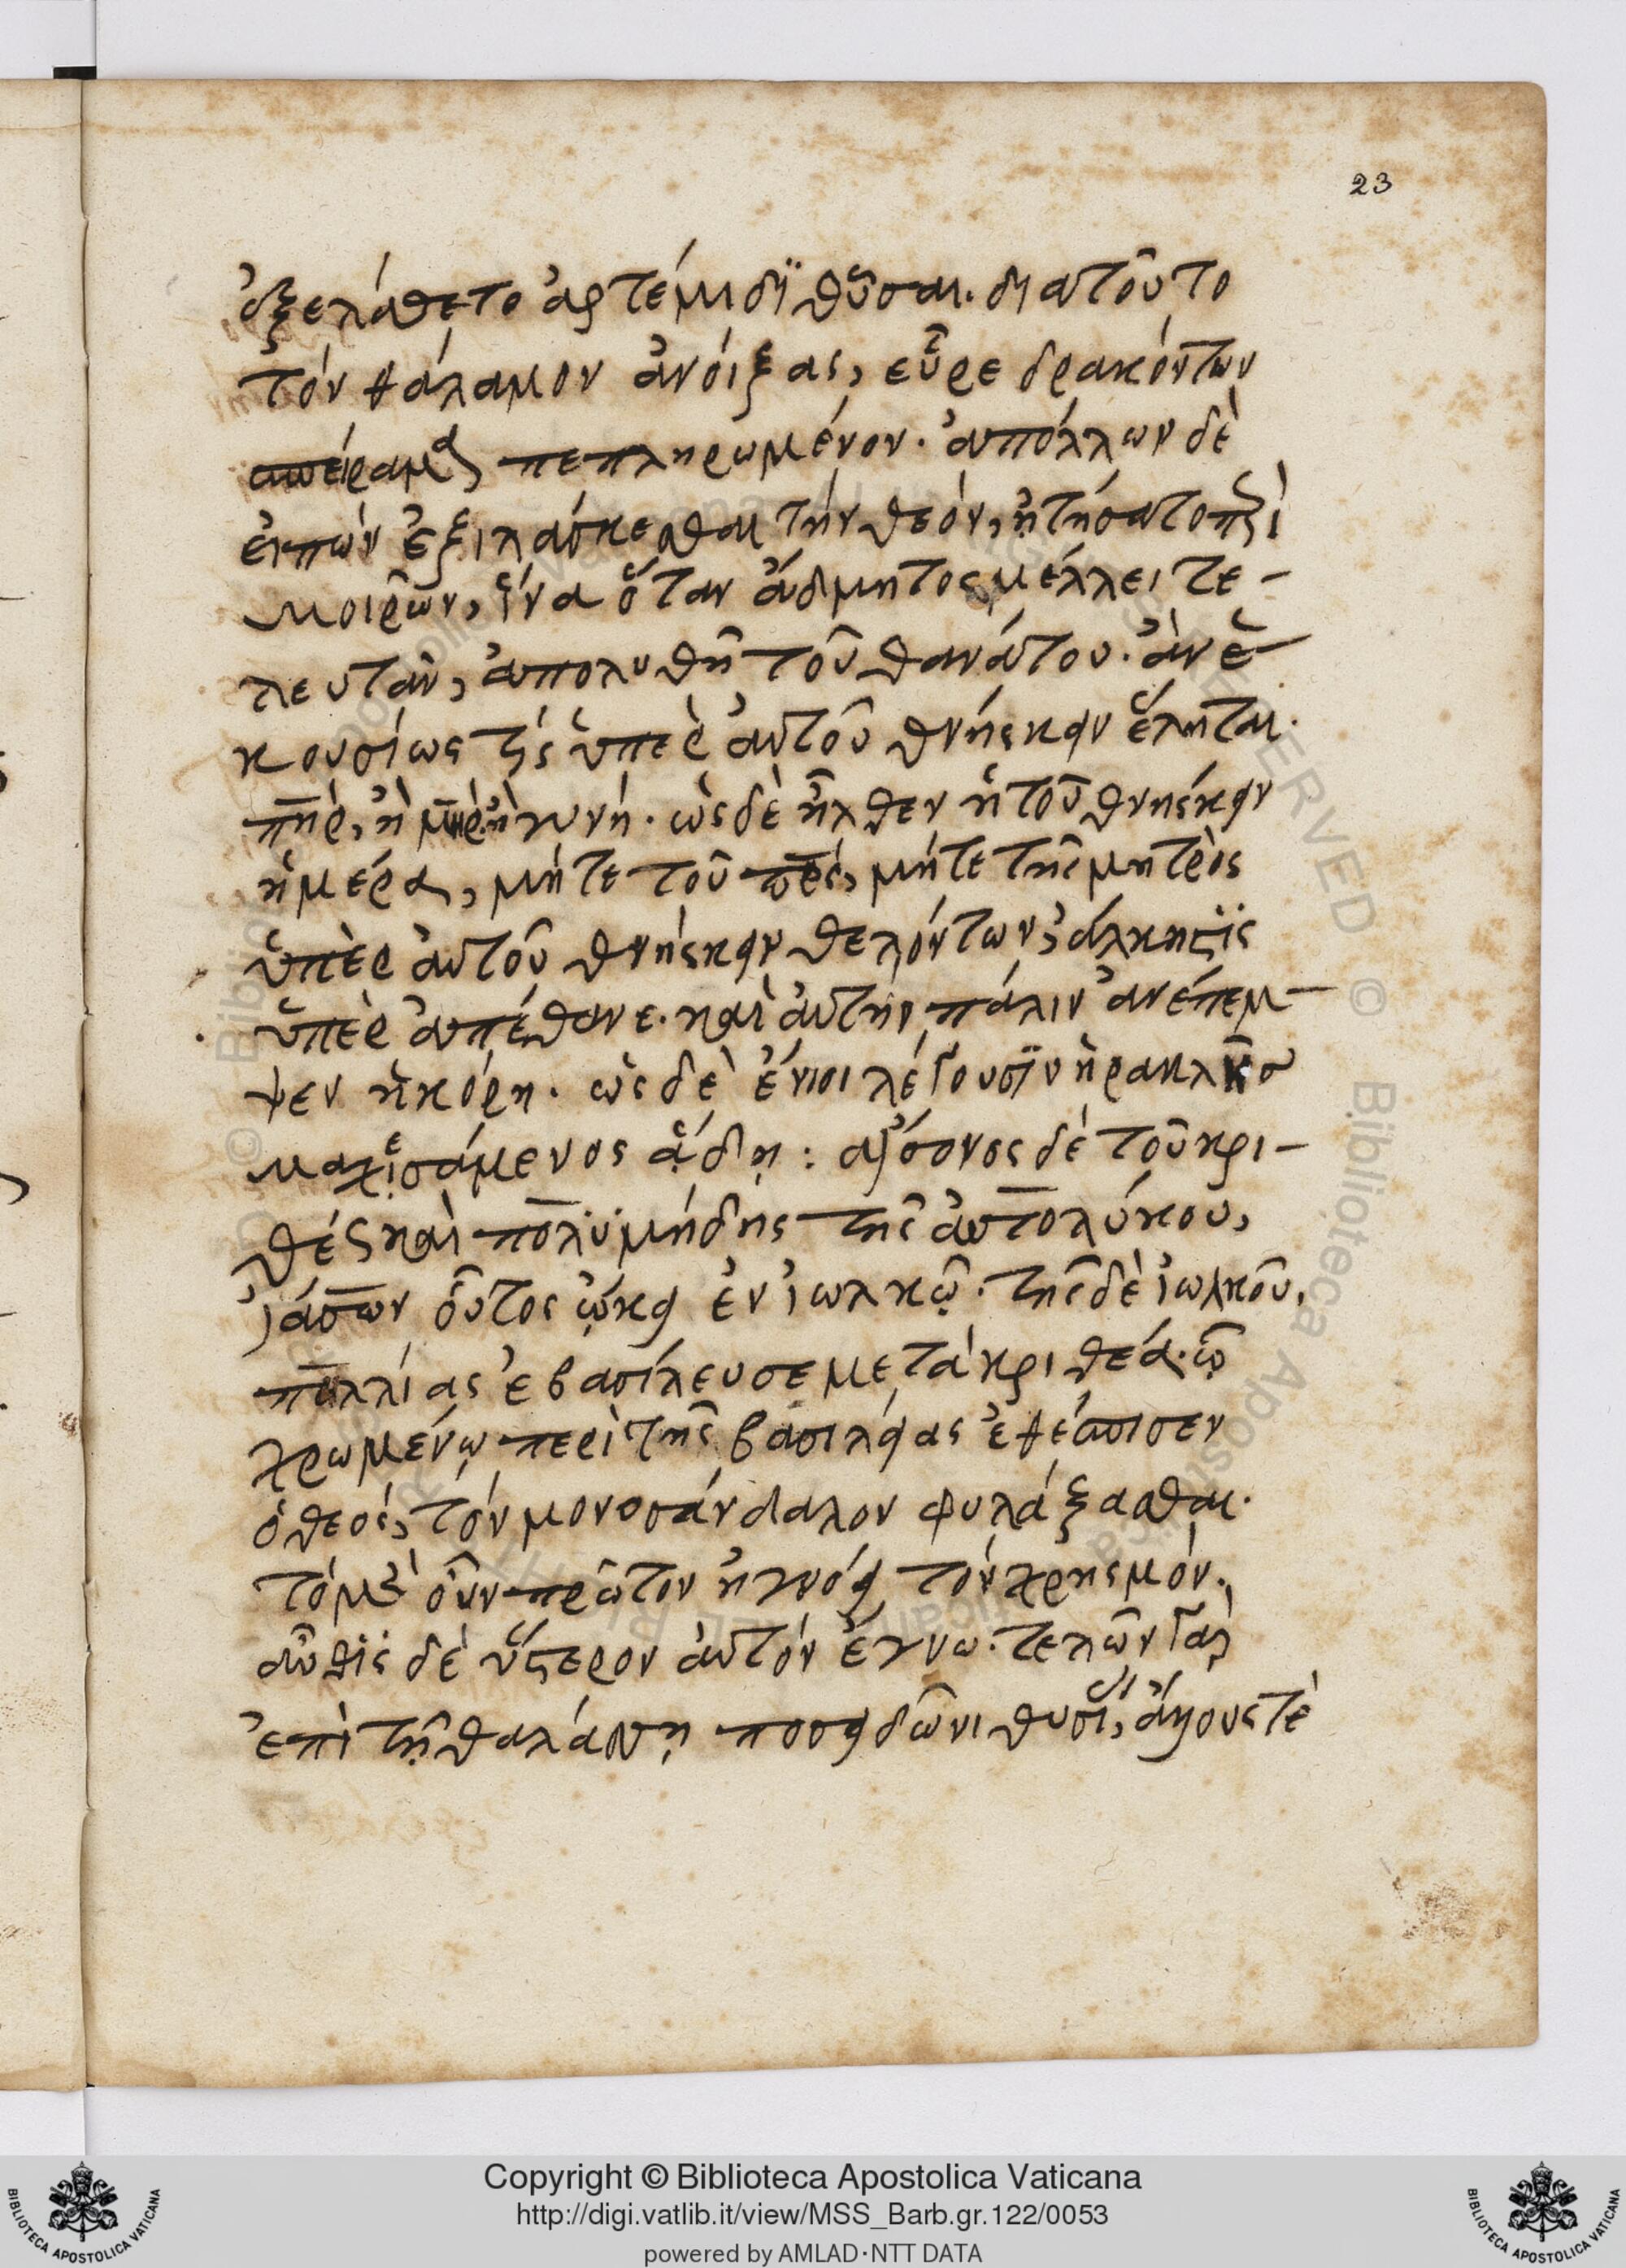 23
ἐξελάθετο ἀρτέμιδϊ θῦσαι. διατοῦτο
τὸν θάλαμον ἀνοίξας, εὗρε δρακόντων
σπείραμα πεπληρωμένον. ἀπόλλων δὲ
εἰπὼν ἐξιλάσκεσθαι τὴν θεόν, ᾐτήσατο πὶ
μοιρῶν, ἵνα ὅταν ἄδμητος μέλλει τε-
λευτᾶν, ἀπολυθῆ τοῦ θανάτου. ἂν ἑ-
κουσίως τίς ὑπὲρ αὐτοῦ θνήσκειν ἕληται.
πηρ, ἢ μηρ ἢ γυνή. ὡς δὲ ἦλθεν ἡ τοῦ θνήσκειν
ἡμέρα, μήτε τοῦ πρς, μήτε τῆς μητρὸς
ὑπὲρ αὐτοῦ θνήσκειν θελόντων, ἄλκηστϊς
ὑπὲρ ἀπέθανε. καὶ αὐτὴν πάλιν ἀνέπεμ-
ψεν ἡ κόρη. ὡς δὲ ἔνιοι λέγουσϊν ἡρακλῆσ
μαχεσάμενος ᾅδῃ: αἴσονος δὲ τοῦ κρι-
θέως καὶ πολϋμήδης τῆς αὐτολύκου,
ἰάσων οὗτος ᾤκει ἐν ἰωλκῷ. τῆς δὲ ἰωλκοῦ,
πελλίας ἐβασίλευσε μετὰ κριθέα. ᾧ
χρωμένῳ περὶ τῆς βασιλείας ἐθέσπισεν
ὁ θεός, τὸν μονοσάνδαλον φυλάξασθαι.
τὸ μὲν οὖν πρῶτον ἠγνόει τὸν χρησμόν.
αὖθϊς δὲ ὕστερον αὐτὸν ἔγνω. τελῶν γὰρ
ἐπὶ τῇ θαλάσσῃ ποσειδῶνι θυσίαν, ἄλλους τὲ
Copyright © Biblioteca Apostolica Vaticana
http://digi.vatlib.it/view/MSS_Barb.gr.122/0053
powered by AMLAD·NTT DATA
BIBLIOTECA APOSTOLICA VATICANA
BIBLIOTECA APOSTOLICA VATICANA